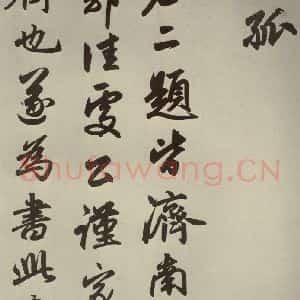 孤
二題皆濟南
郭佳處公謹家
也遂為書此
shufawang.CN